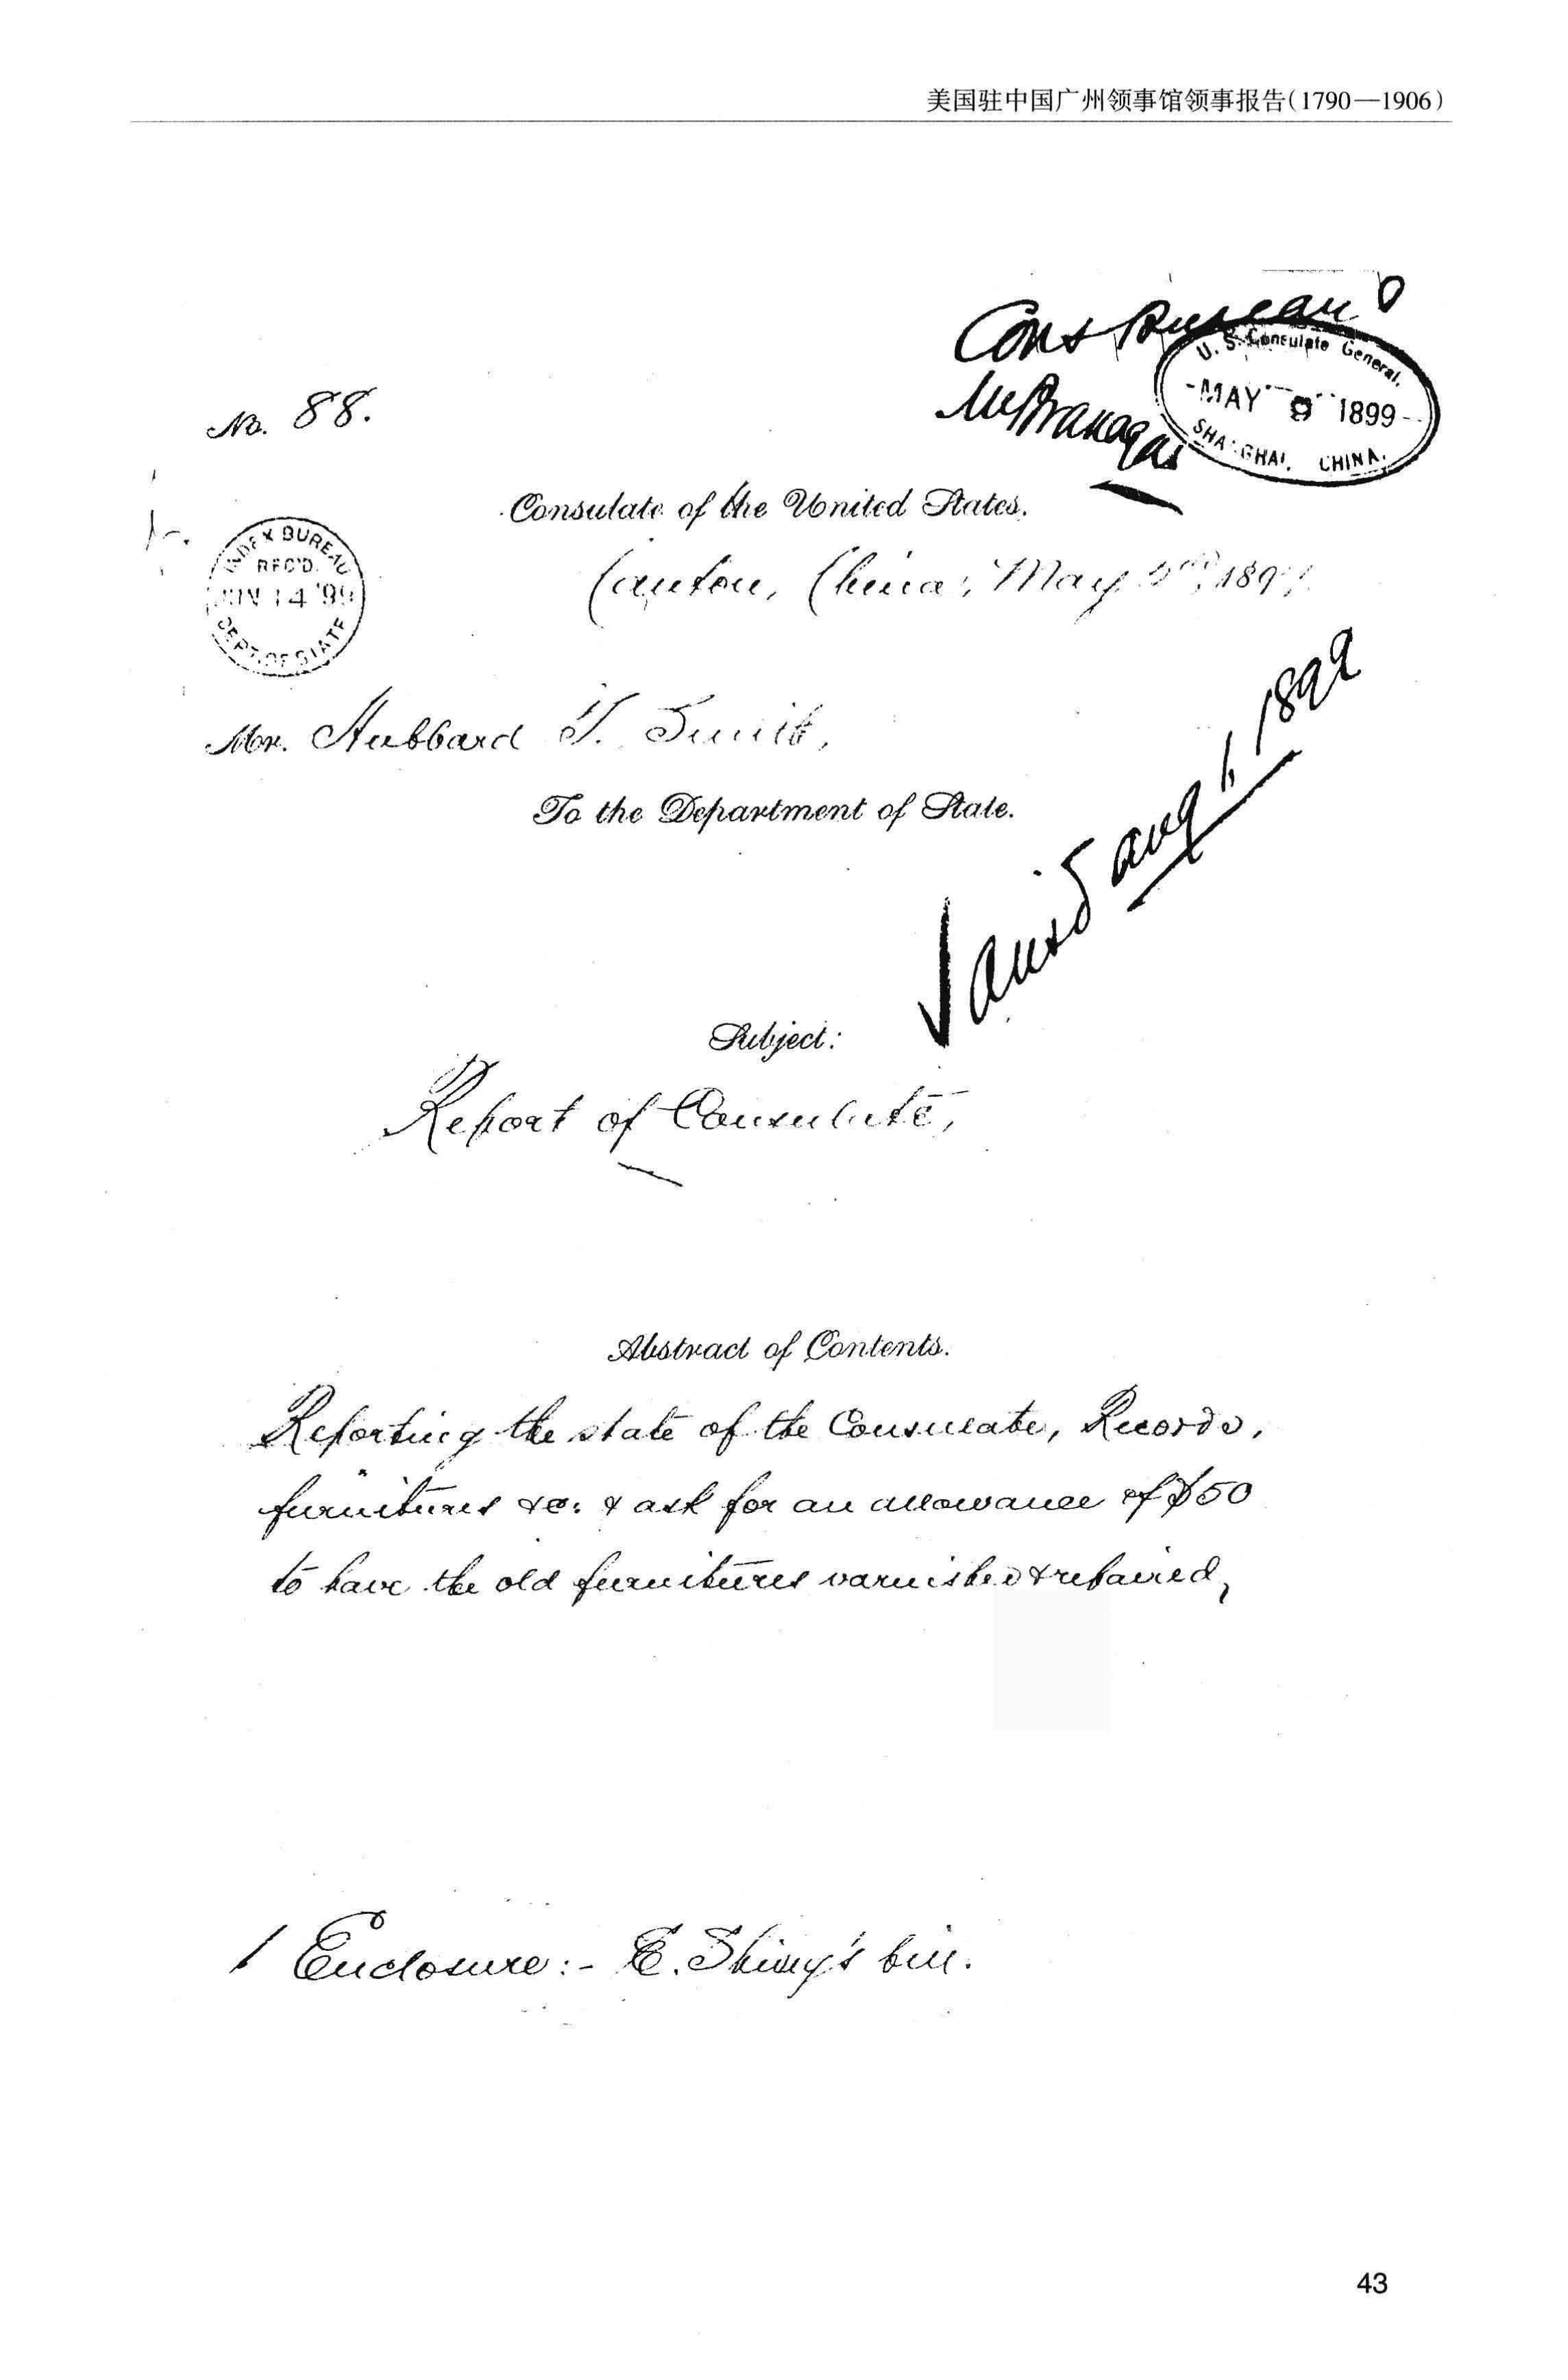 美国驻中国广州领事馆领事报告(1790—1906)
Cons Bureau
U. S. Consulate General,
MAY 9 1899
SHANGHAI, CHINA.
No. 88.
Consulate of the United States.
INDEX BUREAU
REC'D.
JUN 14 '99
DEPT. OF STATE
Canton, China, May 1899
Mr. Hubbard T. Smith,
To the Department of State.
ansd Aug 1, 1899
Subject:
Report of Consulate,
Abstract of Contents.
Reporting the state of the Consulate, Records,
furnitures &c. & ask for an allowance of $50
to have the old furnitures varnished & repaired,
1 Enclosure:- E. Shing's bill.
43